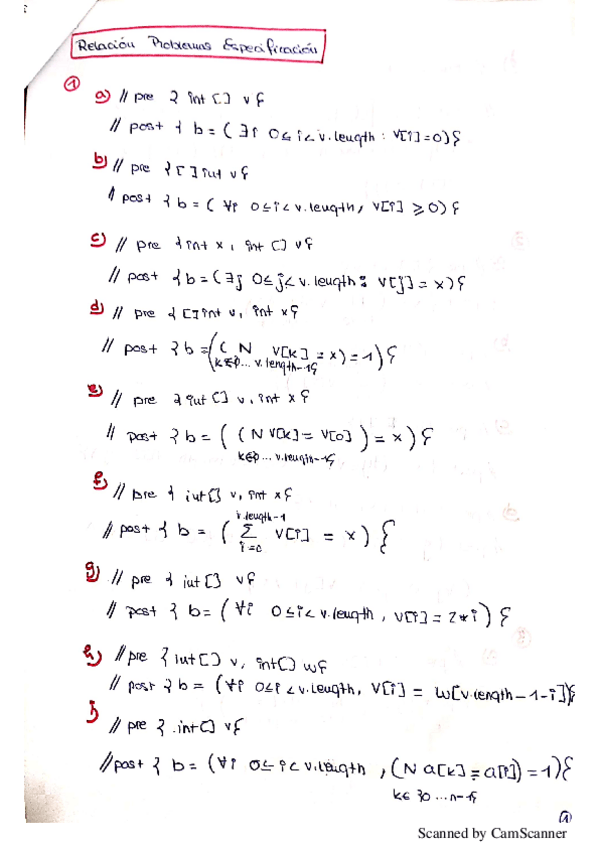 Relación Problemas Especificación
①
a) // pre { int [] v }
// post { b = ( ∃i 0≤i<v.length : v[i]=0) }
b) // pre { [] int v }
// post { b = ( ∀i 0≤i<v.length, v[i] ≥ 0) }
c) // pre { int x, int [] v }
// post { b = ( ∃j 0≤j<v.length : v[j] = x) }
d) // pre { [] int v, int x }
// post { b = ( ( N v[k] = x) = 1) }
k∈{0... v.length-1}
e) // pre { int [] v, int x }
// post { b = ( ( N v[k] = v[0] ) = x) }
k∈{0... v.length-1}
f) // pre { int [] v, int x }
v.length-1
// post { b = ( Σ v[i] = x) }
i=0
g) // pre { int [] v }
// post { b = ( ∀i 0≤i<v.length, v[i] = 2*i) }
h) // pre { int [] v, int [] w }
// post { b = (∀i 0≤i<v.length, v[i] = w[v.length-1-i]) }
i) // pre { int [] v }
// post { b = (∀i 0≤i<v.length, (N a[k] = a[i]) = 1) }
k∈{0...n-1}
①
Scanned by CamScanner